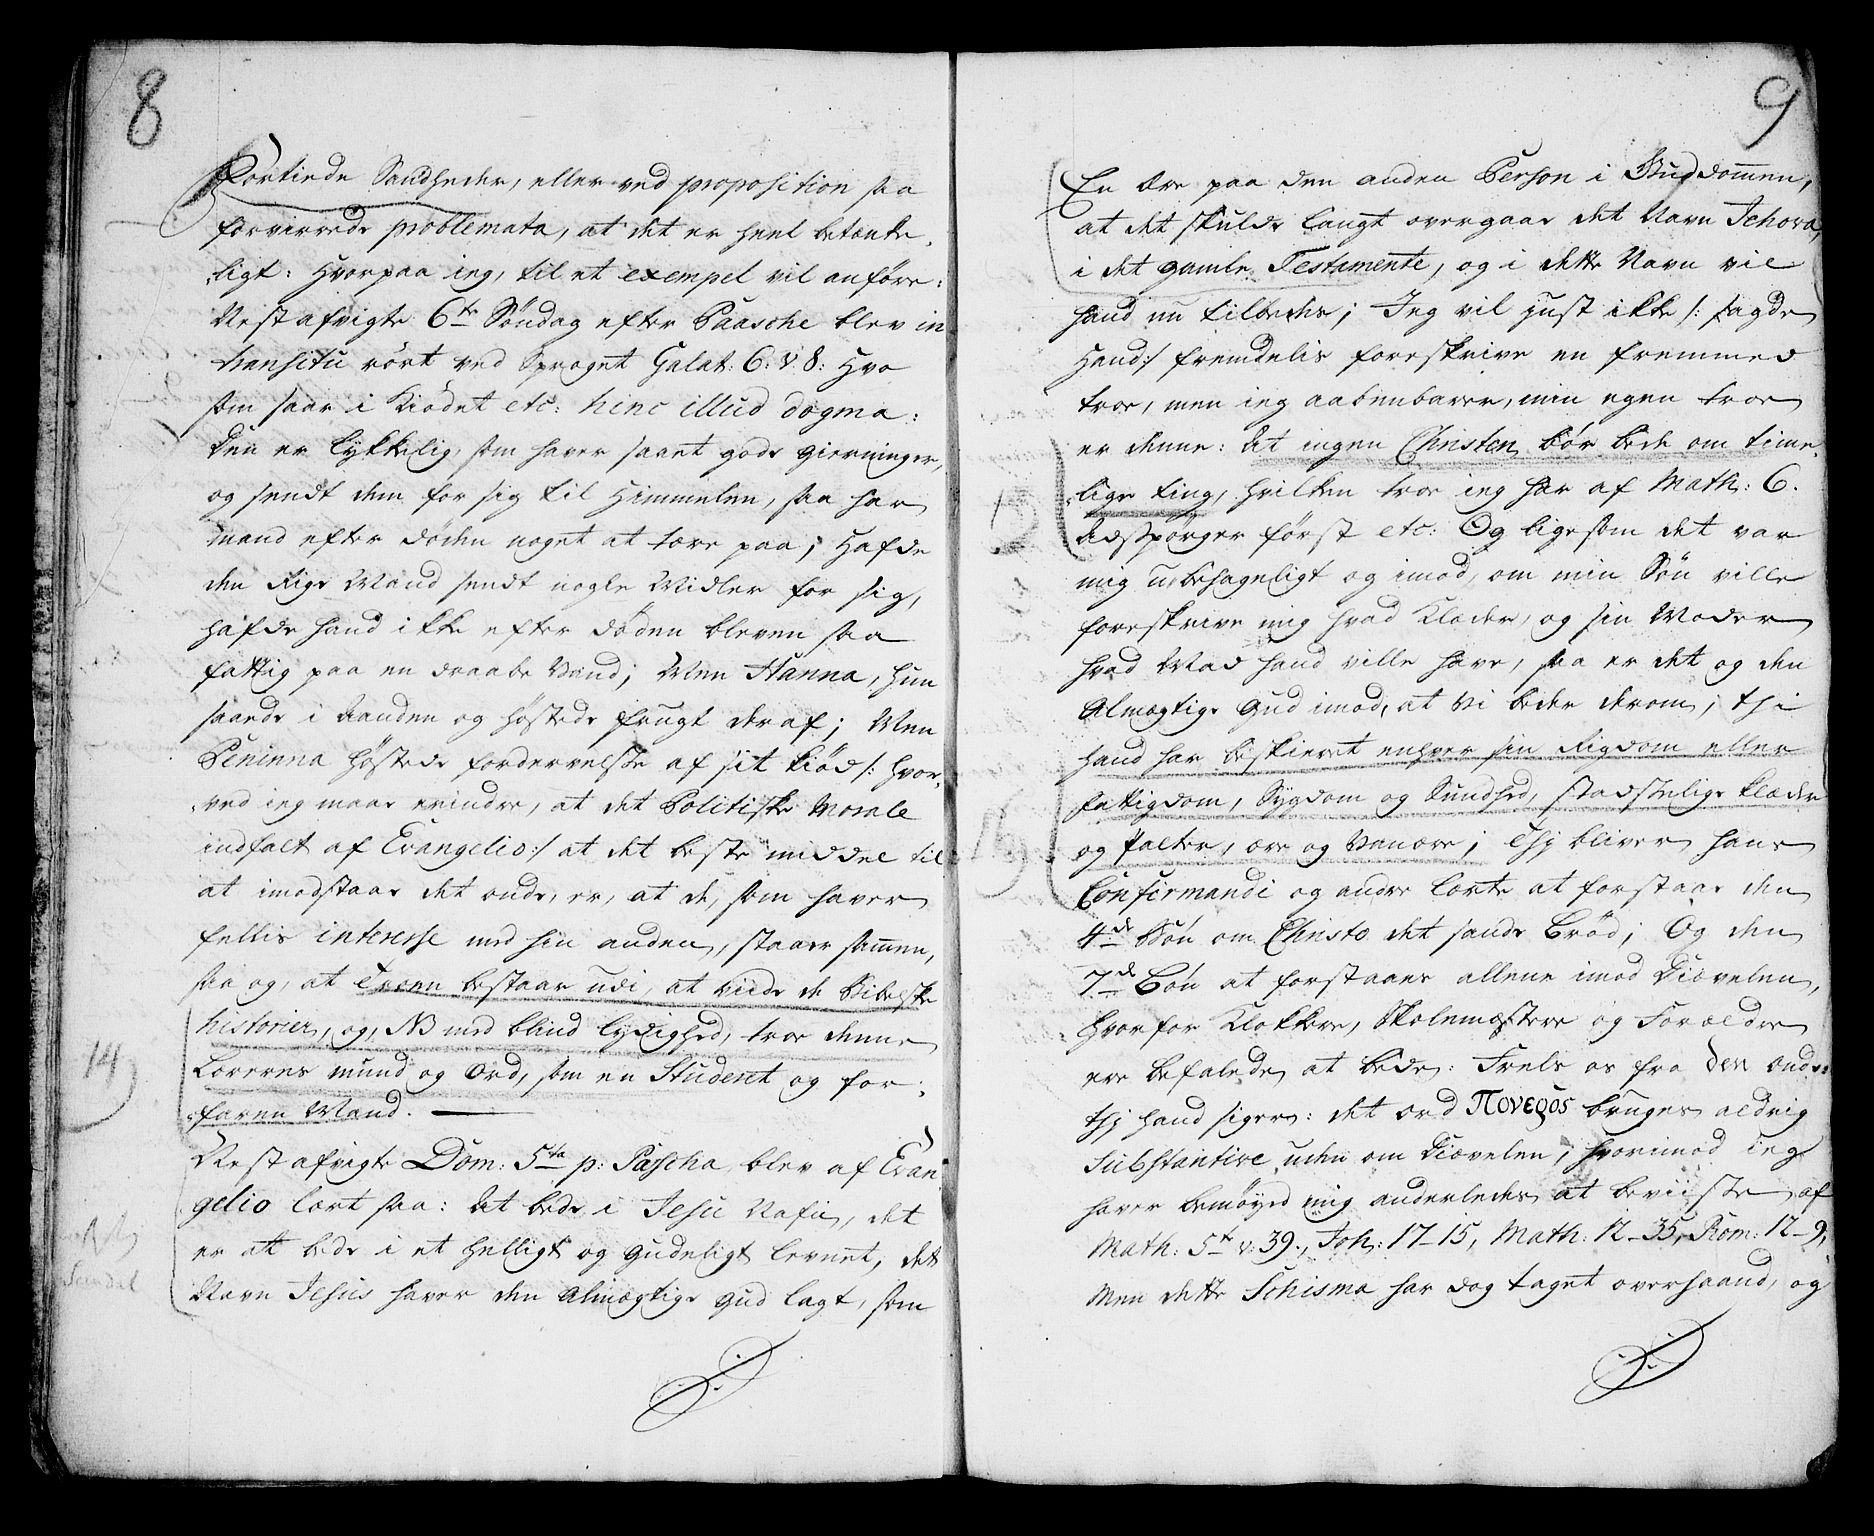 8
Fortiede Sandheder, eller ved proposition saa
forvirrede problemata, at det er heel betænke-
ligt: Hvorpaa ieg, til et exempel vil anføre:
Nest afvigte 6te Søndag efter Paasche blev in
transitu rört ved Sproget Galat: 6: v. 8: Hvo
som saaer i Kiödet etc: hinc illud dogma:
Den er lykkelig, som haver saaet gode gierninger,
og sendt dem for sig til Himmelen, saa har
mand efter döden noget at tære paa; Hafde
den Rige Mand sendt nogle Midler for sig,
hafde hand ikke efter döden bleven saa
fattig paa en draabe Vand; Men Hanna, hun
saaede i Aanden og höstede frugt deraf; Men
Peninna höstede fordervelse af sit kiöd /: hvor-
ved ieg maae erindre, at det Politiske Morale
indfalt af Evangelio :/ at det beste middel til
at imodstaae det onde, er, at de, som haver
fellis interesse med hin anden, staaer sammen,
saa og, at Troen bestaar udi, at viide de Bibelske
historier, og, NB med blind lydighed, troe denne
Læreres mund og Ord, som en Studeret og for-
faren Mand.
14
Nest afvigte Dom: 5ta p: Pascha, blev af Evan-
gelio lært saa: At bede i Jesu Nafn, det
er at bede i et helligt og gudeligt levnet, det
Navn Jesus haver den Almægtige Gud lagt, som
9
En Ære paa den anden Person i Guddommen,
at det skulde langt overgaae det Navn Jehova,
i det gamle Testamente, og i dette Navn vil
hand nu tilbedes; Jeg vil just ikke /: sagde
Hand :/ fremdelis foreskrive en fremmed
troe, men ieg aabenbarer, min egen troe
er denne: At ingen Christen bör bede om time-
lige ting, hvilken troe ieg har af Math: 6.
Adspörger först etc: Og ligesom det var
mig ubehageligt og imod, om min Sön ville
foreskrive mig hvad Klæder, og sin Moder
hvad Mad hand ville have, saa er det og den
Almægtige Gud imod, at vi beder derom; thi
hand har beskieret enhver sin Rigdom eller
fattigdom, Sygdom og Sundhed, stadselige klæder
og Palter, ære og Vanære; Thj bliver hans
Confirmandi og andre lærte at forstaae den
4de Bön om Christo det sande Bröd; Og den
7de Bön at forstaaes allene imod Diævelen,
hvorfor Klokkere, Skolemestere og Forældre
ere befalede at bede: Frels os fra den onde:
thj hand siger: det ord Πονεϱος bruges aldrig
Substantive uden om Diævelen; hvorimod ieg
haver bemöyed mig anderledes at beviiste af
Math: 5t v: 39., Joh: 17-15, Math: 12-35, Rom: 12-9,
Men dette Schisma har dog taget overhaand, og
15
16